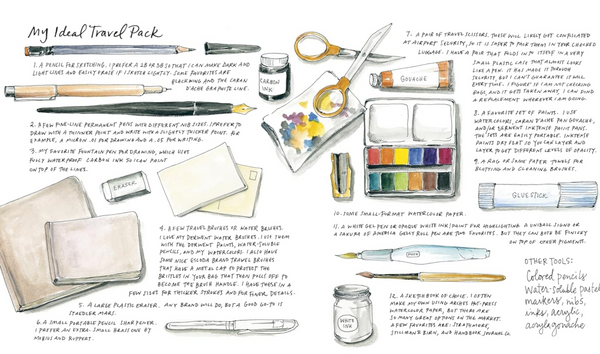 My Ideal Travel Pack
1. A PENCIL FOR SKETCHING. I PREFER A 2B OR 3B SO THAT I CAN MAKE DARK AND
LIGHT LINES AND EASILY ERASE IF I SKETCH LIGHTLY. SOME FAVORITES ARE
BLACKWING AND THE CARAN
D'ACHE GRAPHITE LINE.
2. A FEW FINE-LINE PERMANENT PENS WITH DIFFERENT NIB SIZES. I PREFER TO
DRAW WITH A THINNER POINT AND WRITE WITH A SLIGHTLY THICKER POINT. FOR
EXAMPLE, A MICRON .03 FOR DRAWING AND A .05 FOR WRITING.
3. MY FAVORITE FOUNTAIN PEN FOR DRAWING, WHICH USES
FULLY WATERPROOF CARBON INK SO I CAN PAINT
ON TOP OF THE LINES.
ERASER
CARBON
INK
4. A FEW TRAVEL BRUSHES OR WATER BRUSHES.
I LOVE MY DERWENT WATER BRUSHES. I USE THEM
WITH THE DERWENT PAINTS, WATER-SOLUBLE
PENCILS, AND MY WATERCOLORS. I ALSO HAVE
SOME NICE ESCODA BRAND TRAVEL BRUSHES
THAT HAVE A METAL CAP TO PROTECT THE
BRISTLES IN YOUR BAG THAT THEN PULLS OFF TO
BECOME THE BRUSH HANDLE. I HAVE THESE IN A
FEW SIZES FOR THICKER STROKES AND FOR FINER DETAILS.
5. A LARGE PLASTIC ERASER. ANY BRAND WILL DO, BUT A GOOD GO-TO IS
STAEDLER MARS.
6. A SMALL PORTABLE PENCIL SHARPENER.
I PREFER AN EXTRA-SMALL BRASS ONE BY
MÖBIUS AND RUPPERT.
7. A PAIR OF TRAVEL SCISSORS. THESE WILL LIKELY GET CONFISCATED
AT AIRPORT SECURITY, SO IT IS SAFER TO PACK THEM IN YOUR CHECKED
LUGGAGE. I HAVE A PAIR THAT FOLDS INTO ITSELF IN A VERY
SMALL PLASTIC CASE THAT ALMOST LOOKS
LIKE A PEN. IT HAS MADE IT THROUGH
SECURITY, BUT I CAN'T GUARANTEE IT WILL
EVERY TIME. I FIGURE IF I AM NOT CHECKING
BAGS, AND IT GETS TAKEN AWAY, I CAN FIND
A REPLACEMENT WHEREVER I AM GOING.
GOUACHE
8. A FAVORITE SET OF PAINTS. I USE
WATERCOLORS, CARAN D'ACHE PAN GOUACHE,
AND/OR DERWENT INKTENSE PAINT PANS.
THE SETS ARE EASILY PORTABLE. INKTENSE
PAINTS DRY FLAT SO YOU CAN LAYER AND
LAYER TO GET DIFFERENT LEVELS OF OPACITY.
9. A RAG OR SOME PAPER TOWELS FOR
BLOTTING AND CLEANING BRUSHES.
GLUE STICK
10. SOME SMALL-FORMAT WATERCOLOR PAPER.
11. A WHITE GEL PEN OR OPAQUE WHITE INK/PAINT FOR HIGHLIGHTING. A UNIBALL SIGNO OR
A SAKURA OF AMERICA GELLY ROLL PEN ARE TWO FAVORITES. BUT THEY CAN BOTH BE FINICKY
ON TOP OF OTHER PIGMENTS.
WHITE
INK
12. A SKETCHBOOK OF CHOICE. I OFTEN
MAKE MY OWN USING ARCHES HOT-PRESS
WATERCOLOR PAPER, BUT THERE ARE
SO MANY GREAT OPTIONS ON THE MARKET.
A FEW FAVORITES ARE: STRATHMORE,
STILLMAN & BIRN, AND HANDBOOK JOURNAL CO.
OTHER TOOLS:
Colored pencils
Water-soluble pastels
markers, nibs,
inks, acrylic,
acryla gouache